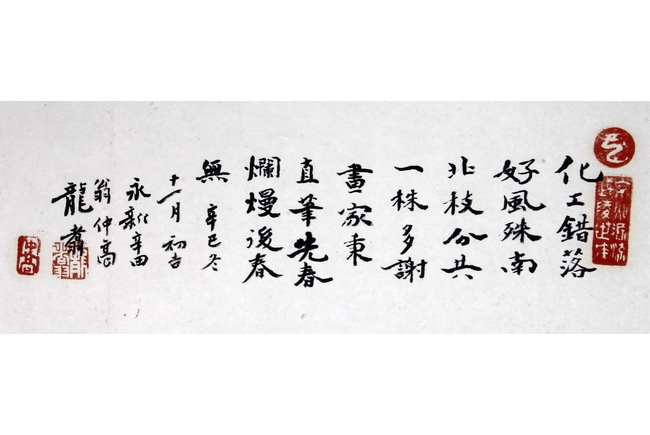 化工錯落
好風殊南
北枝分共
一株多謝
畫家秉
直筆先春
爛熳後春
無 辛巳冬
十一月初吉
永新辛田
翁仲高
龍翥